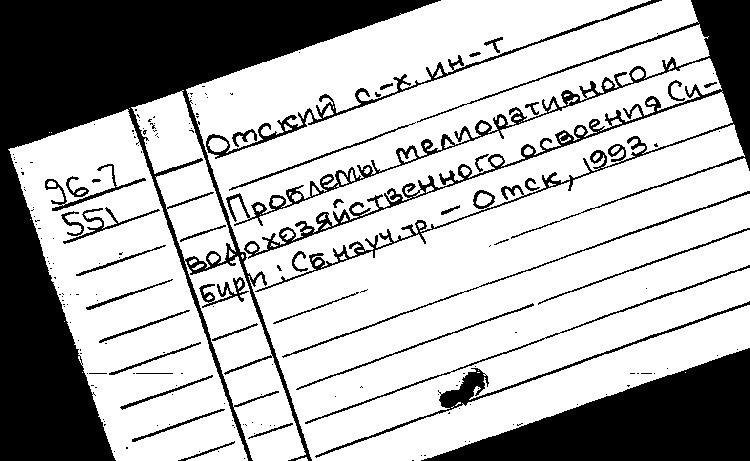 Омский с.-х. ин-т
96-7
551
Проблемы мелиоративного и
водохозяйственного освоения Си-
бири : Сб.науч.тр. — Омск, 1993.